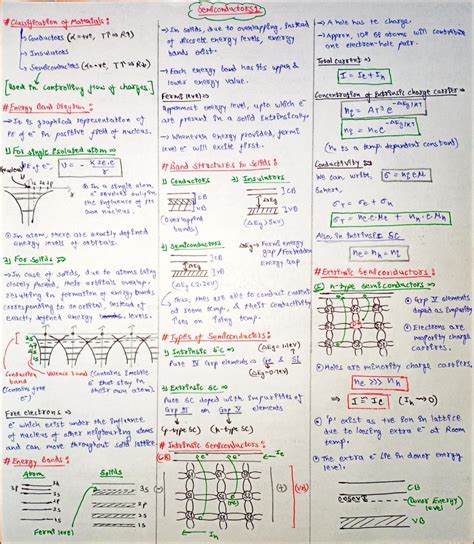 Semiconductors 1
# Classification of Materials:
→ Conductors (α=+ve, T↑ ⇒ R↑)
→ Insulators
→ Semiconductors (α=-ve, T↑ ⇒ R↓)
[Used in controlling flow of charges.]
# Energy Band Diagram:
→ It is graphical representation of
PE of e⁻ in positive field of nucleus.
1) For single isolated atom ⇒
U = - Kze.e/r
PE of e⁻
nucleus
① In a single atom,
e⁻ revolves only in
the influence of its
own nucleus.
② In atom, there are exactly defined
energy levels of orbitals.
2) For Solids ⇒
→ In case of solids, due to atoms being
closely packed, their orbitals overlap
resulting in formation of energy bands
corresponding to an orbital instead of
exactly defined energy levels.
3s
2p
2s
1s
Conduction band
(contains free e⁻)
Valence band
(contains those e⁻ that stay in their own atom)
Free electrons ⇒
e⁻ which exist under the influence
of nucleus of other neighbouring atoms
and can move throughout solid lattice.
# Energy Bands:
Atom
Solids
3s
2p
2s
1s
Fermi level
3s
2p
2s
1s
→ In solids, due to overlapping, instead
of discrete energy levels, energy
bands exist.
→ Each energy band has its upper &
lower energy value.
Fermi level ⇒
Uppermost energy level, upto which e⁻
are present in a solid intrinsically.
→ Whenever energy provided, fermi
level e⁻ will excite first.
# Band Structures in Solids:
1) Conductors
CB
VB
(Overlapping bands)
2) Insulators
CB
VB
(ΔEg > 5eV)
3) Semiconductors
CB
VB
ΔEg → Fermi energy gap / Forbidden
Energy Gap
→ Thus, they are able to conduct current
at room temp, & their conductivity
rises on rising temp.
# Types of Semiconductors:
1) Intrinsic SC ⇒
Pure IV Grp elements ⇒ Ge & Si
(ΔEg=1.1eV)
2) Extrinsic SC ⇒
Pure SC doped with impurities of
Grp III or Grp V elements
(p-type SC)
(n-type SC)
# Intrinsic Semiconductors:
CB
VB
Ie
Ih
→ A hole has +e charge.
→ Approx, 10⁹ Ge atoms will contribute
one electron-hole pair.
Total current ⇒
I = Ie + Ih
Concentration of Intrinsic charge carrier ⇒
(n₀ is a temp dependent constant)
Conductivity ⇒
We can write,
σ = neM
σT = ne.e.Me + nh.e.Mh
Also in Intrinsic SC
ne = nh = ni
# Extrinsic Semiconductors:
① n-type semiconductors ⇒
① Grp V
elements
doped as impurity
② Electrons are
majority charge
carriers.
③ Holes are minority charge carriers.
ne >>> nh
⇒ I ≅ Ie (Ih → 0)
④ 'P' exist as +ve ion in lattice
due to losing extra e⁻ at Room
temp.
→ The extra e⁻ lie in donor energy
level.
0.05eV
CB
Donor Energy level
VB